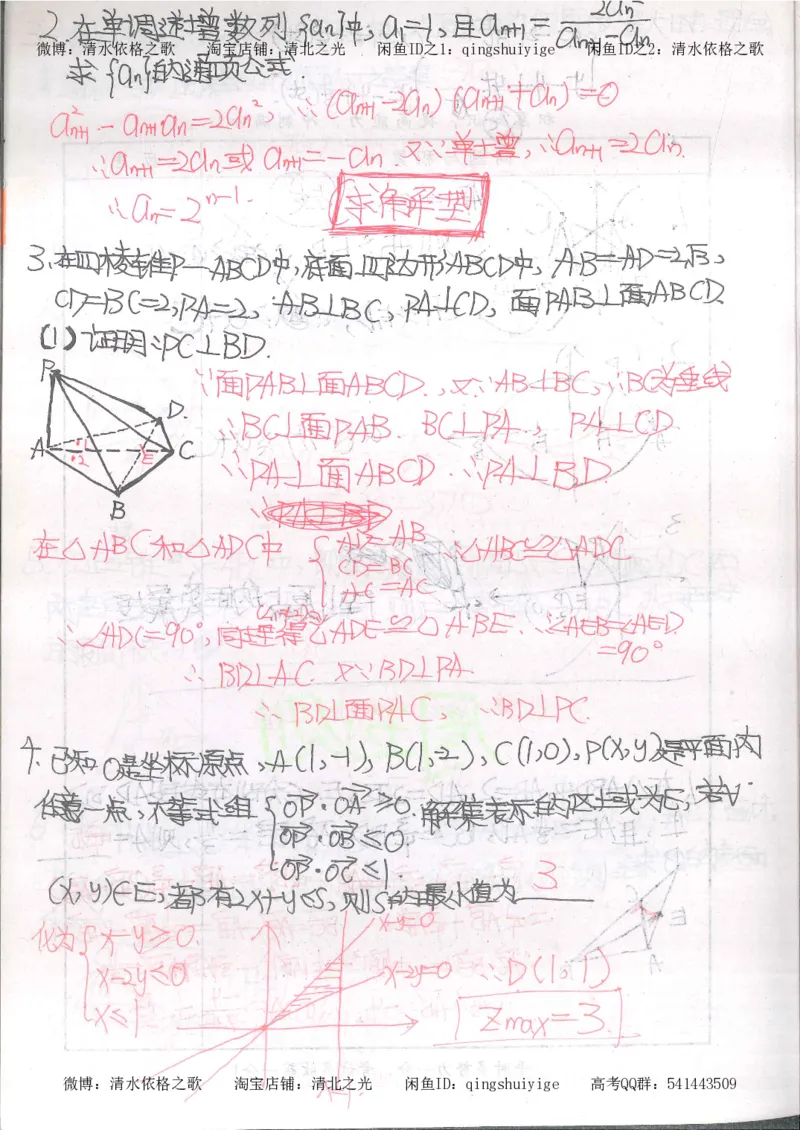 2. 在单调递增数列{an}中, a1=1, 且an+1= 2an² / an+1-an
微博：清水依格之歌 淘宝店铺：清北之光 闲鱼ID之1：qingshuiyige 闲鱼ID之2：清水依格之歌
求{an}的通项公式.
a²n+1-an+1an=2an², ∴(an+1-2an)(an+1+an)=0
∴an+1=2an或an+1=-an 又∵单增, ∴an+1=2an.
∴an=2^(n-1).
求解型
3. 在四棱锥P-ABCD中, 底面四边形ABCD中, AB=AD=2√3,
CD=BC=2, PA=2, AB⊥BC, PA⊥CD, 面PAB⊥面ABCD.
(1) 证明:PC⊥BD.
P
∵面PAB⊥面ABCD., 又∵AB⊥BC, ∴BC为垂线
D.
∴BC⊥面PAB. BC⊥PA, PA⊥CD.
A 1 2 E C
∴PA⊥面ABCD ∴PA⊥BD.
B
在△ABC和△ADC中 { AD=AB
CD=BC
AC=AC
∴△ABC≌△ADC
∴∠ADC=90°, 同理得△ADE≌△ABE. ∴∠AEB=∠AED.
=90°
∴BD⊥AC 又∵BD⊥PA.
∴BD⊥面PAC, ∴BD⊥PC.
4. 已知O是坐标原点, A(1,-1), B(1,-2), C(1,0), P(x,y)是平面内
任意一点, 不等式组 { OP·OA≥0. 解集表示的区域为E, 若∀
OP·OB≤0.
OP·OC≤1.
(x,y)∈E, 都有2x+y≤S, 则S的最小值为 3
化为 { x-y≥0.
x-2y≤0
x≤1
x-y=0
x-2y=0 ∴D(1,1)
E
A
Zmax=3.
微博：清水依格之歌 淘宝店铺：清北之光 闲鱼ID：qingshuiyige 高考QQ群：541443509